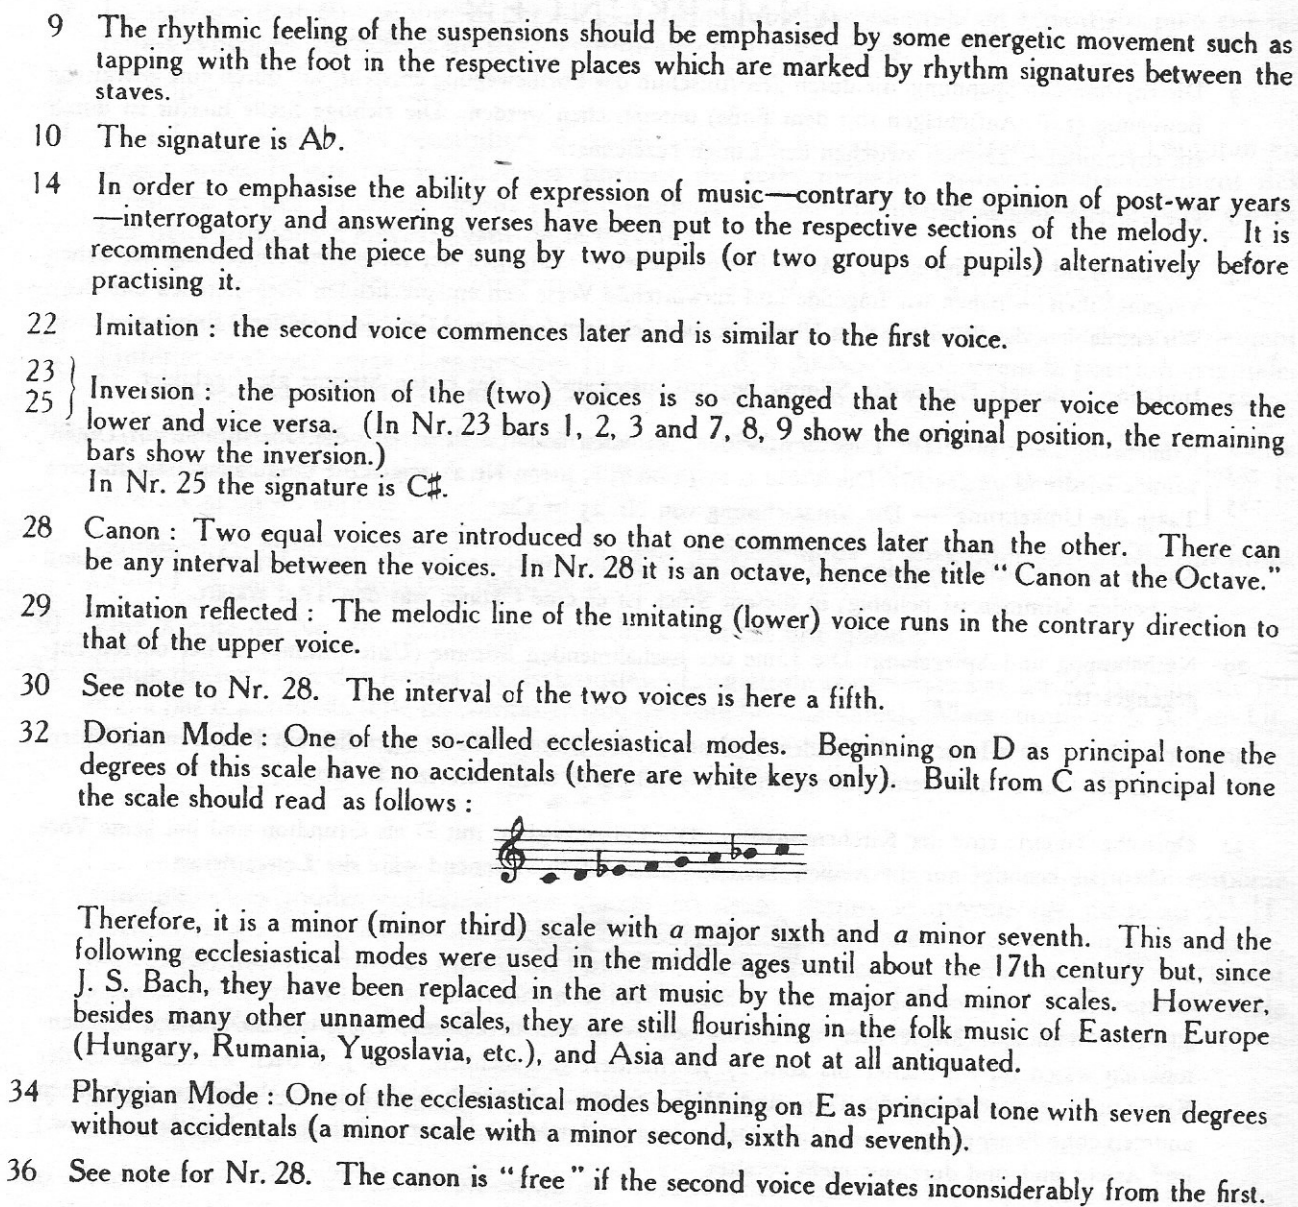 9 The rhythmic feeling of the suspensions should be emphasised by some energetic movement such as
tapping with the foot in the respective places which are marked by rhythm signatures between the
staves.
10 The signature is A♭.
14 In order to emphasise the ability of expression of music—contrary to the opinion of post-war years
—interrogatory and answering verses have been put to the respective sections of the melody. It is
recommended that the piece be sung by two pupils (or two groups of pupils) alternatively before
practising it.
22 Imitation : the second voice commences later and is similar to the first voice.
23
25 } Inversion : the position of the (two) voices is so changed that the upper voice becomes the
lower and vice versa. (In Nr. 23 bars 1, 2, 3 and 7, 8, 9 show the original position, the remaining
bars show the inversion.)
In Nr. 25 the signature is C♯.
28 Canon : Two equal voices are introduced so that one commences later than the other. There can
be any interval between the voices. In Nr. 28 it is an octave, hence the title “ Canon at the Octave.”
29 Imitation reflected : The melodic line of the imitating (lower) voice runs in the contrary direction to
that of the upper voice.
30 See note to Nr. 28. The interval of the two voices is here a fifth.
32 Dorian Mode : One of the so-called ecclesiastical modes. Beginning on D as principal tone the
degrees of this scale have no accidentals (there are white keys only). Built from C as principal tone
the scale should read as follows :
Therefore, it is a minor (minor third) scale with a major sixth and a minor seventh. This and the
following ecclesiastical modes were used in the middle ages until about the 17th century but, since
J. S. Bach, they have been replaced in the art music by the major and minor scales. However,
besides many other unnamed scales, they are still flourishing in the folk music of Eastern Europe
(Hungary, Rumania, Yugoslavia, etc.), and Asia and are not at all antiquated.
34 Phrygian Mode : One of the ecclesiastical modes beginning on E as principal tone with seven degrees
without accidentals (a minor scale with a minor second, sixth and seventh).
36 See note for Nr. 28. The canon is “ free ” if the second voice deviates inconsiderably from the first.